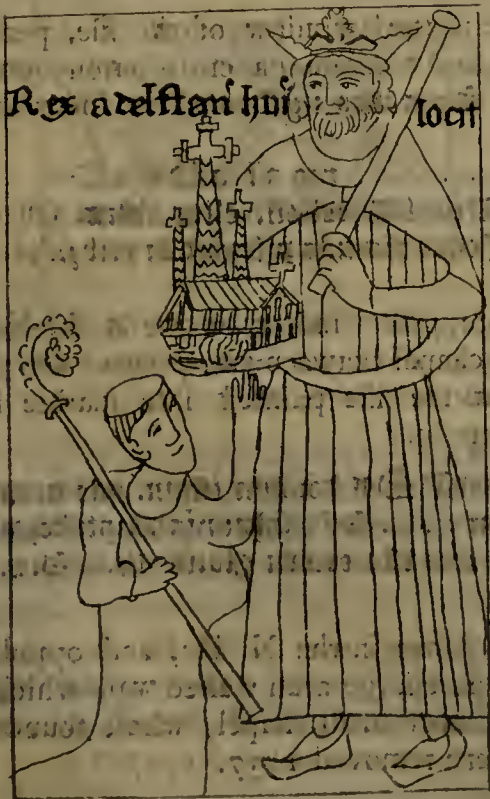 Rex adelſten' hui' locit